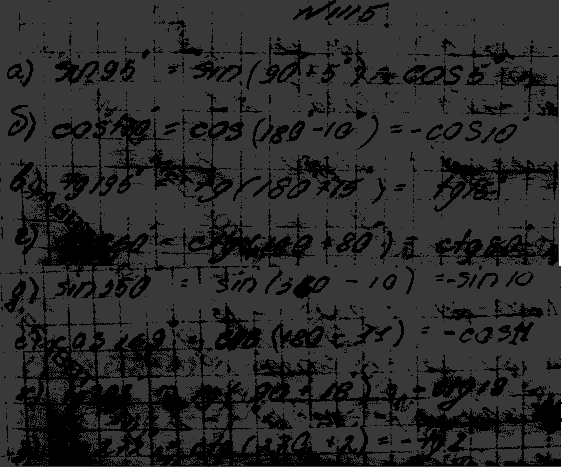 N1115
а) sin95° = sin(90+5°) = cos5
б) cos170 = cos(180-10°) = -cos10°
в) tg195° = tg(180+15) = tg15
г) = ctg( +80°) = ctg80
д) sin350° = sin(360-10) = -sin10
е) cos169° = (180-11) = -cos11
= (90+18) = -ctg18
= ctg(270+2) = -tg2